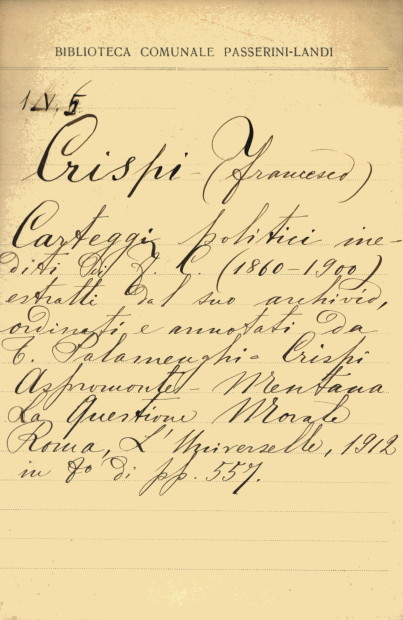 BIBLIOTECA COMUNALE PASSERINI-LANDI
1 IV. 5
Crispi (Francesco)
Carteggi politici ine-
diti di F. C. (1860-1900)
estratti dal suo archivio,
ordinati e annotati da
T. Palamenghi-Crispi
Aspromonte - Mentana
La Questione Morale
Roma, L'Universelle, 1912
in 8º di pp. 557.